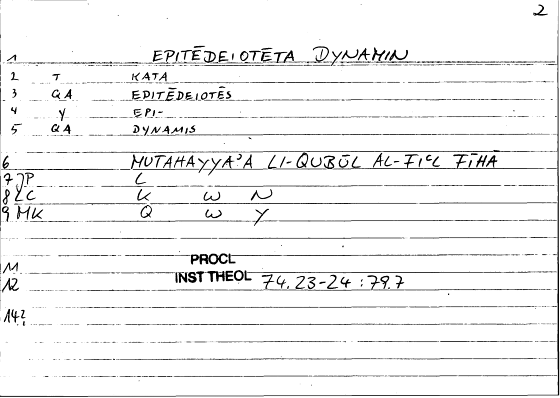 2
1 EPITĒDEIOTĒTA DYNAMIN
2 T KATA
3 QA EPITĒDEIOTĒS
4 Y EPI-
5 QA DYNAMIS
6 MUTAHAYYAʾA LI-QUBŪL AL-FIʿL FĪHĀ
7 JP L
8 LC K W N
9 MK Q W Y
11
12 PROCL INST THEOL 74.23-24 : 79.7
14?